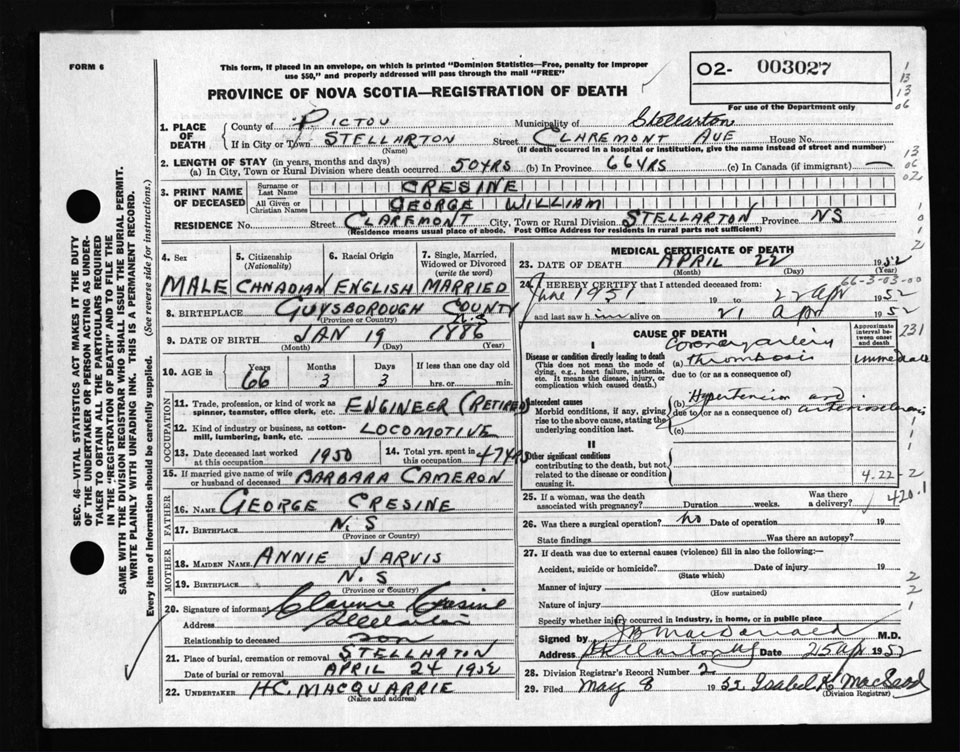 FORM 6
This form, if placed in an envelope, on which is printed "Dominion Statistics—Free, penalty for improper
use $50," and properly addressed will pass through the mail "FREE"
O2- 003027
For use of the Department only
PROVINCE OF NOVA SCOTIA—REGISTRATION OF DEATH
1
13
13
06
13
06
02
1. PLACE OF DEATH
County of PICTOU Municipality of Stellarton
If in City or Town STELLARTON Street CLAREMONT AVE House No.
(Name) (If death occurred in a hospital or institution, give the name instead of street and number)
2. LENGTH OF STAY (in years, months and days)
(a) In City, Town or Rural Division where death occurred 50 YRS (b) In Province 66 YRS (c) In Canada (if immigrant) —
3. PRINT NAME OF DECEASED
Surname or Last Name CRESINE
All Given or Christian Names GEORGE WILLIAM
RESIDENCE No. Street CLAREMONT City, Town or Rural Division STELLARTON Province NS
(Residence means usual place of abode. Post Office Address for residents in rural parts not sufficient)
4. Sex 5. Citizenship (Nationality) 6. Racial Origin 7. Single, Married, Widowed or Divorced (write the word)
MALE CANADIAN ENGLISH MARRIED
8. BIRTHPLACE GUYSBOROUGH COUNTY N.S
(Province or Country)
9. DATE OF BIRTH JAN 19 1886
(Month) (Day) (Year)
10. AGE in Years Months Days If less than one day
66 3 3 hrs. or min.
OCCUPATION
11. Trade, profession, or kind of work as spinner, teamster, office clerk, etc. ENGINEER (RETIRED)
12. Kind of industry or business, as cotton-mill, lumbering, bank, etc. LOCOMOTIVE
13. Date deceased last worked at this occupation 1950 14. Total yrs. spent in this occupation 47 YRS
15. If married give name of wife or husband of deceased BARBARA CAMERON
FATHER
16. NAME GEORGE CRESINE
17. BIRTHPLACE N.S
(Province or Country)
MOTHER
18. MAIDEN NAME ANNIE JARVIS
19. BIRTHPLACE N.S
(Province or Country)
20. Signature of informant Clarence Cresine
Address Stellarton
Relationship to deceased son
21. Place of burial, cremation or removal STELLARTON
Date of burial or removal APRIL 24 1952
22. UNDERTAKER H.C. MACQUARRIE
(Name and address)
MEDICAL CERTIFICATE OF DEATH
23. DATE OF DEATH APRIL 22 1952
(Month) (Day) (Year)
24. I HEREBY CERTIFY that I attended deceased from: 66-3-03-00
June 1951 19 to 22 apr 1952
and last saw him alive on 21 apr 1952
CAUSE OF DEATH
Approximate interval between onset and death
231
I
Disease or condition directly leading to death
(This does not mean the mode of dying, e.g., heart failure, asthenia, etc. It means the disease, injury, or complication which caused death.)
Coronary artery
(a) thrombosis immediate
due to (or as a consequence of)
Antecedent causes
Morbid conditions, if any, giving rise to the above cause, stating the underlying condition last.
(b) Hypertension and
due to (or as a consequence of) arteriosclerosis
(c)
II
Other significant conditions
contributing to the death, but not related to the disease or condition causing it.
4-22-2
420.1
25. If a woman, was the death associated with pregnancy? Duration weeks. Was there a delivery?
26. Was there a surgical operation? no Date of operation 19
State findings Was there an autopsy?
27. If death was due to external causes (violence) fill in also the following:—
Accident, suicide or homicide? Date of injury 19
(State which)
Manner of injury
(How sustained)
Nature of injury
Specify whether injury occurred in industry, in home, or in public place
Signed by J B MacDonald M.D.
Address Stellarton NS Date 25 apr 1952
28. Division Registrar's Record Number 2
29. Filed May 8 1952 Isabel K MacLeod
(Division Registrar)
SEC. 46—VITAL STATISTICS ACT MAKES IT THE DUTY
OF THE UNDERTAKER OR PERSON ACTING AS UNDER-
TAKER TO OBTAIN ALL THE PARTICULARS REQUIRED
IN THE "REGISTRATION OF DEATH" AND TO FILE THE
SAME WITH THE DIVISION REGISTRAR WHO SHALL ISSUE THE BURIAL PERMIT.
WRITE PLAINLY WITH UNFADING INK. THIS IS A PERMANENT RECORD.
Every item of information should be carefully supplied. (See reverse side for instructions.)